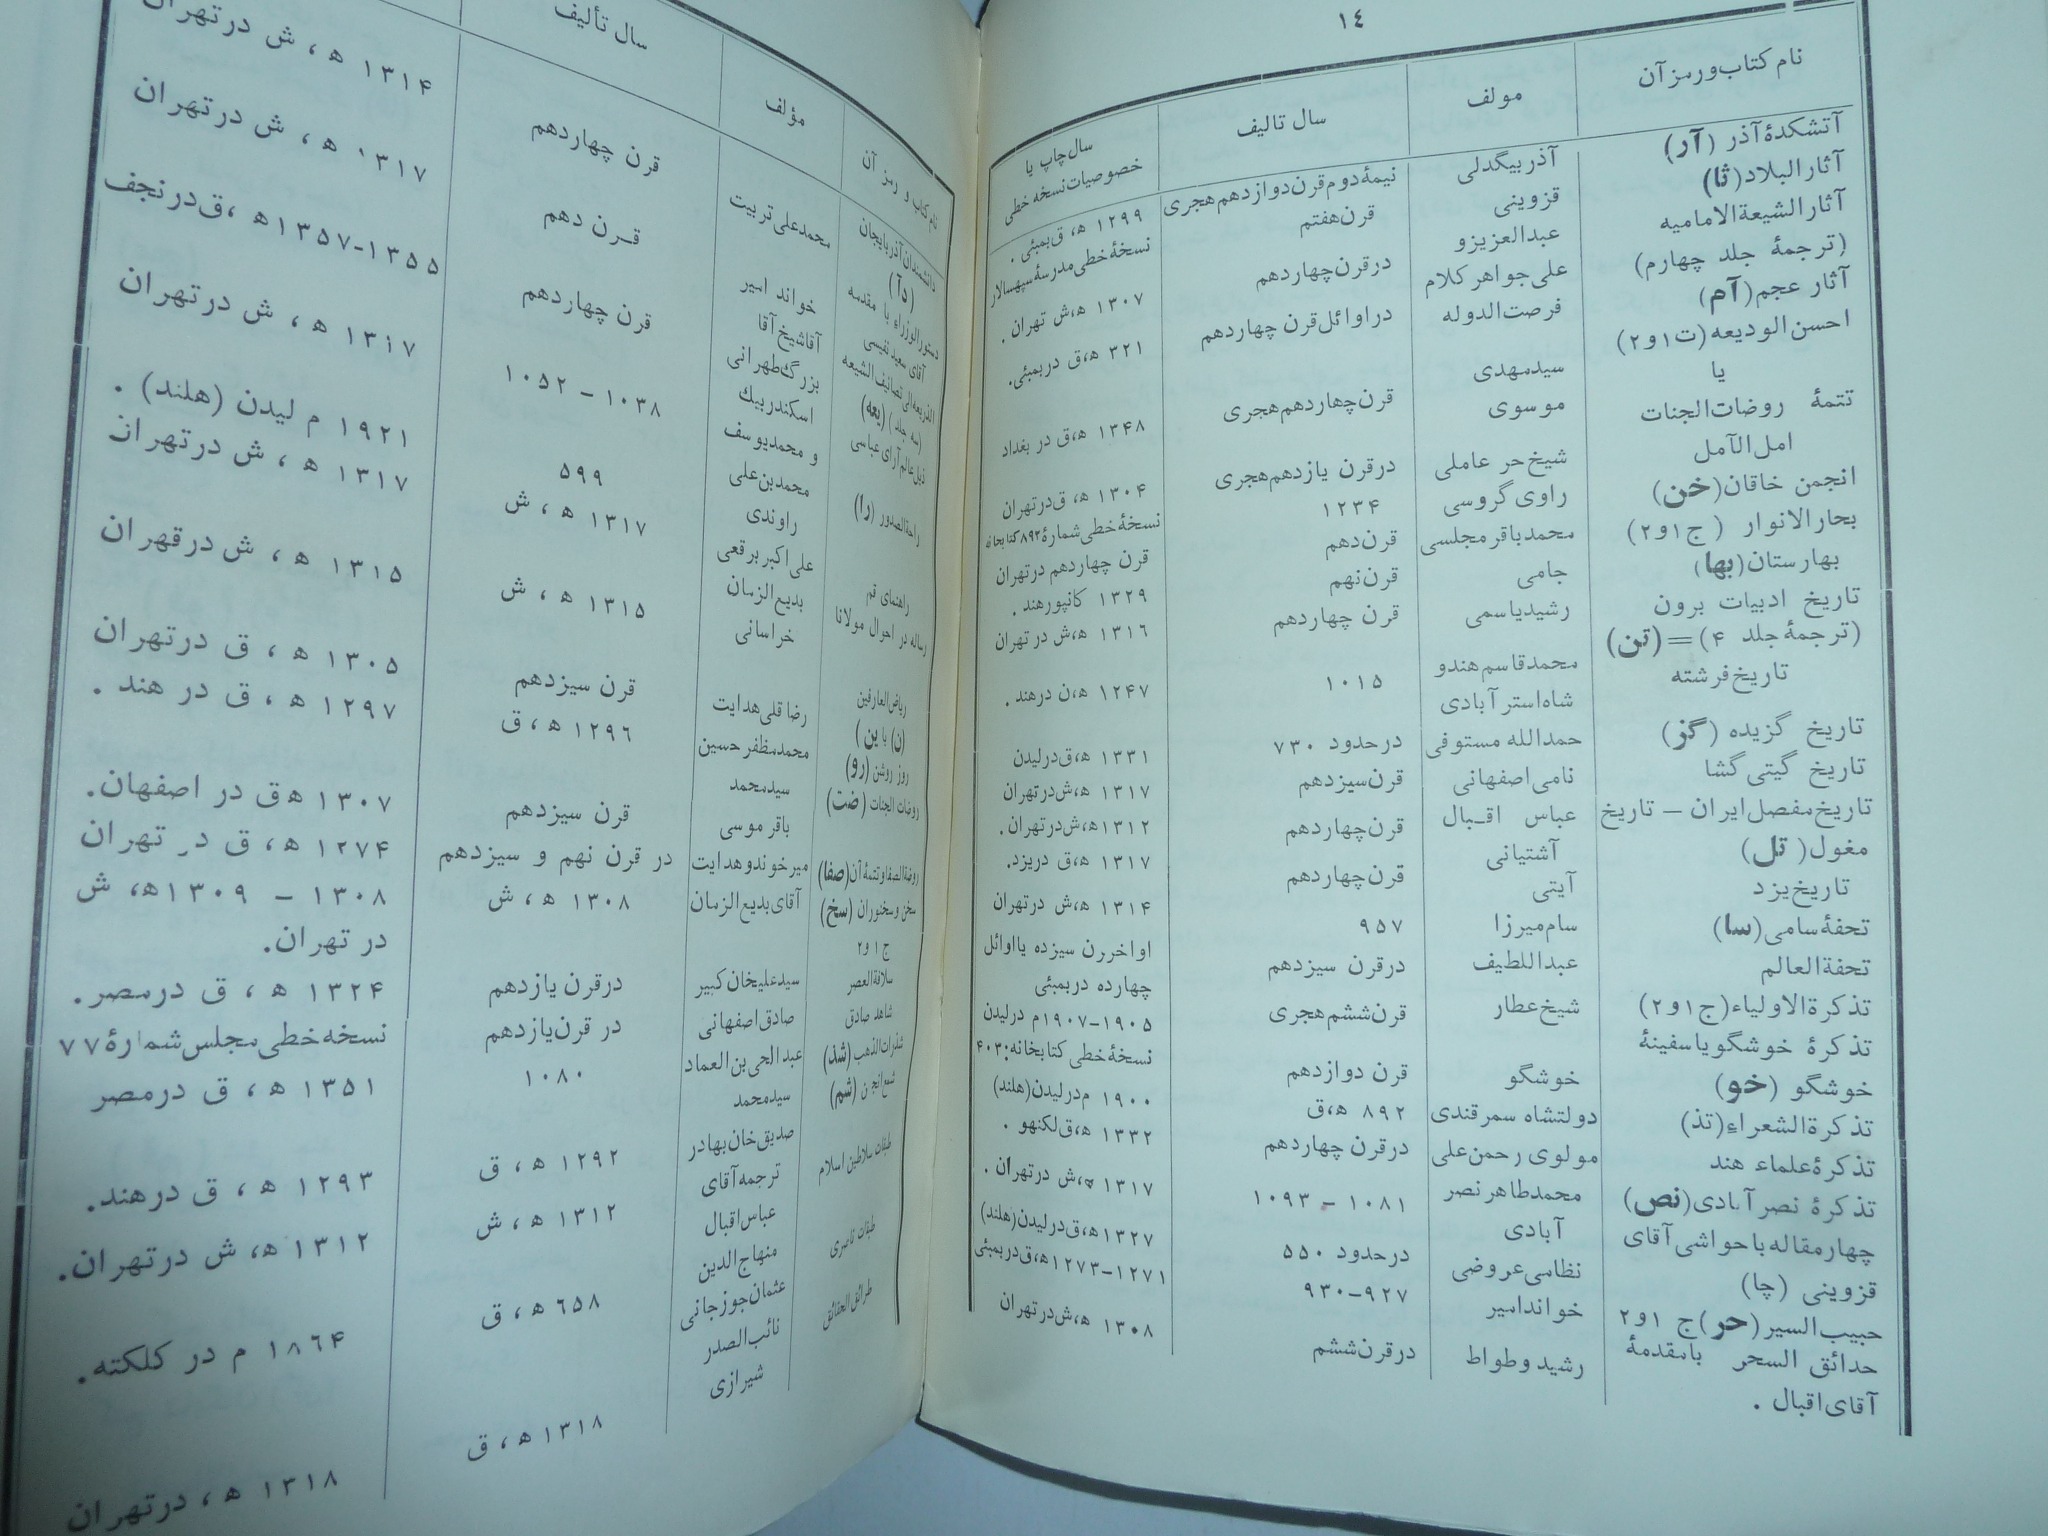 ١٤
نام کتاب و رمز آن
مولف
سال تالیف
سال چاپ یا
خصوصیات نسخه خطی
آتشکدهٔ آذر (آر)
آذر بیگدلی
نیمهٔ دوم قرن دوازدهم هجری
۱۲۹۹ ه، ق بمبئی .
آثار البلاد (ثا)
قزوینی
قرن هفتم
نسخهٔ خطی مدرسهٔ سپهسالار
آثار الشیعة الامامیه
(ترجمهٔ جلد چهارم)
عبدالعزیز و
علی جواهر کلام
در قرن چهاردهم
۱۳۰۷ ه، ش تهران .
آثار عجم (آم)
فرصت الدوله
در اوائل قرن چهاردهم
۳۲۱ ه، ق در بمبئی.
احسن الودیعه (ت ۱ و ۲)
یا
تتمهٔ روضات الجنات
سید مهدی
موسوی
قرن چهاردهم هجری
۱۳۴۸ ه، ق در بغداد
امل الآمل
شیخ حر عاملی
در قرن یازدهم هجری
۱۳۰۴ ه، ق در تهران
انجمن خاقان (خن)
راوی گروسی
۱۲۳۴
نسخهٔ خطی شمارهٔ ۸۹۲ کتابخانه
بحار الانوار ( ج ۱ و ۲)
محمد باقر مجلسی
قرن دهم
قرن چهاردهم در تهران
بهارستان (بها)
جامی
قرن نهم
۱۳۲۹ کانپور هند .
تاریخ ادبیات برون
(ترجمهٔ جلد ۴) = (تن)
رشید یاسمی
قرن چهاردهم
۱۳۱۶ ه، ش در تهران
تاریخ فرشته
محمد قاسم هندو
شاه استر آبادی
۱۰۱۵
۱۲۴۷ ه، ن در هند .
تاریخ گزیده (گز)
حمدالله مستوفی
در حدود ۷۳۰
۱۳۳۱ ه، ق در لیدن
تاریخ گیتی گشا
نامی اصفهانی
قرن سیزدهم
۱۳۱۷ ه، ش در تهران
تاریخ مفصل ایران - تاریخ
مغول (تل)
عباس اقبال
آشتیانی
قرن چهاردهم
۱۳۱۲ ه، ش در تهران .
تاریخ یزد
آیتی
قرن چهاردهم
۱۳۱۷ ه، ق در یزد.
تحفهٔ سامی (سا)
سام میرزا
۹۵۷
۱۳۱۴ ه، ش در تهران
تحفة العالم
عبداللطیف
در قرن سیزدهم
اواخر رن سیزده یا اوائل
چهارده در بمبئی
تذکرة الاولیاء (ج ۱ و ۲)
شیخ عطار
قرن ششم هجری
۱۹۰۵-۱۹۰۷ م در لیدن
تذکرهٔ خوشگو یا سفینهٔ
خوشگو (خو)
خوشگو
قرن دوازدهم
نسخهٔ خطی کتابخانه: ۴۰۳
تذکرة الشعراء (تذ)
دولتشاه سمرقندی
۸۹۲ ه، ق
۱۹۰۰ م در لیدن (هلند)
تذکرهٔ علماء هند
مولوی رحمن علی
در قرن چهاردهم
۱۳۳۲ ه، ق لکنهو .
تذکرهٔ نصر آبادی (نص)
محمد طاهر نصر
آبادی
۱۰۸۱ - ۱۰۹۳
۱۳۱۷ ه، ش در تهران .
چهار مقاله با حواشی آقای
قزوینی (چا)
نظامی عروضی
در حدود ۵۵۰
۱۳۲۷ ه، ق در لیدن (هلند)
حبیب السیر (حر) ج ۱ و ۲
خواند امیر
۹۲۷-۹۳۰
۱۲۷۱-۱۲۷۳ ه، ق در بمبئی
حدائق السحر با مقدمهٔ
آقای اقبال .
رشید وطواط
در قرن ششم
۱۳۰۸ ه، ش در تهران
نام کتاب و رمز آن
مؤلف
سال تألیف
دانشمندان آذربایجان
(دآ)
محمد علی تربیت
قرن چهاردهم
۱۳۱۴ ه، ش در تهران
دستور الوزراء با مقدمه
آقای سعید نفیسی
خواند امیر
قرن دهم
۱۳۱۷ ه، ش در تهران
الذریعه الی تصانیف الشیعه
(سه جلد) (یعه)
آقا شیخ آقا
بزرگ طهرانی
قرن چهاردهم
۱۳۵۵-۱۳۵۷ ه، ق در نجف
ذیل عالم آرای عباسی
اسکندر بیك
و محمد یوسف
۱۰۳۸ - ۱۰۵۲
۱۳۱۷ ه، ش در تهران
راحة الصدور (را)
محمد بن علی
راوندی
۵۹۹
۱۹۲۱ م لیدن (هلند) .
راهنمای قم
علی اکبر برقعی
۱۳۱۷ ه، ش
۱۳۱۷ ه، ش در تهران
رساله در احوال مولانا
بدیع الزمان
خراسانی
۱۳۱۵ ه، ش
۱۳۱۵ ه، ش در قهران
ریاض العارفین
(ن) یا (ین)
رضا قلی هدایت
قرن سیزدهم
۱۳۰۵ ه، ق در تهران
روز روشن (رو)
محمد مظفر حسین
۱۲۹۶ ه، ق
۱۲۹۷ ه، ق در هند .
روضات الجنات (ضت)
سید محمد
باقر موسی
قرن سیزدهم
۱۳۰۷ ه ق در اصفهان.
روضة الصفا و تتمهٔ آن (صفا)
میر خوند و هدایت
در قرن نهم و سیزدهم
۱۲۷۴ ه، ق در تهران
سخن و سخنوران (سخ)
ج ۱ و ۲
آقای بدیع الزمان
۱۳۰۸ ه، ش
۱۳۰۸ - ۱۳۰۹ ه، ش
در تهران.
سلافة العصر
سید علیخان کبیر
در قرن یازدهم
۱۳۲۴ ه، ق در مصر.
شاهد صادق
صادق اصفهانی
در قرن یازدهم
نسخه خطی مجلس شمارهٔ ۷۷
شذرات الذهب (شذ)
عبد الحی بن العماد
۱۰۸۰
۱۳۵۱ ه، ق در مصر
شمع انجمن (شم)
سید محمد
صدیق خان بهادر
۱۲۹۲ ه، ق
۱۲۹۳ ه، ق در هند.
طبقات سلاطین اسلام
ترجمه آقای
عباس اقبال
۱۳۱۲ ه، ش
۱۳۱۲ ه، ش در تهران.
طبقات ناصری
منهاج الدین
عثمان جوزجانی
۶۵۸ ه، ق
۱۸۶۴ م در کلکته .
طرائق الحقائق
نائب الصدر
شیرازی
۱۳۱۸ ه، ق
۱۳۱۸ ه، در تهران